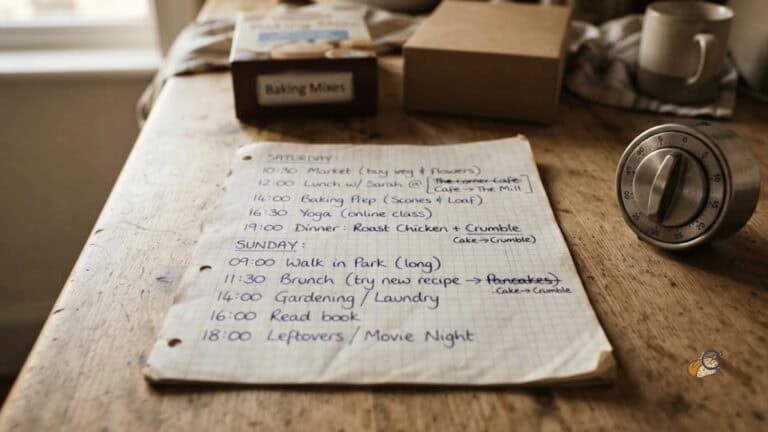 Baking Mixes
SATURDAY
10:30 Market (buy veg & flowers)
12:00 Lunch w/ Sarah @ [The Corner Cafe
Cafe → The Mill]
14:00 Baking Prep (Scones & Loaf)
16:30 Yoga (online class)
19:00 Dinner: Roast Chicken + Crumble
Cake → Crumble)
SUNDAY:
09:00 Walk in Park (long)
11:30 Brunch (try new recipe → Pancakes)
Cake → Crumble
14:00 Gardening / Laundry
16:00 Read book
18:00 Leftovers / Movie Night